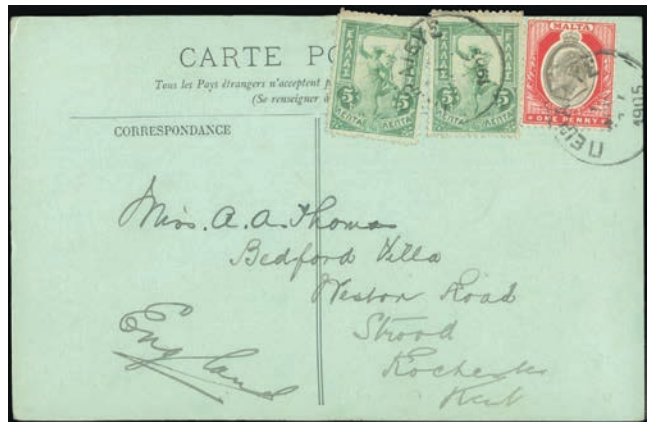 CARTE PO
Tous les Pays étrangers n'acceptent p
(Se renseigner à
CORRESPONDANCE
ΕΛΛΑΣ
5 5
ΛΕΠΤΑ ΛΕΠΤΑ
ΕΛΛΑΣ
5
ΛΕΠΤΑ ΛΕΠΤΑ
MALTA
ONE PENNY
1905
Miss. A. A. Thomas
Bedford Villa
Weston Road
Strood
Rochester
Kent
England